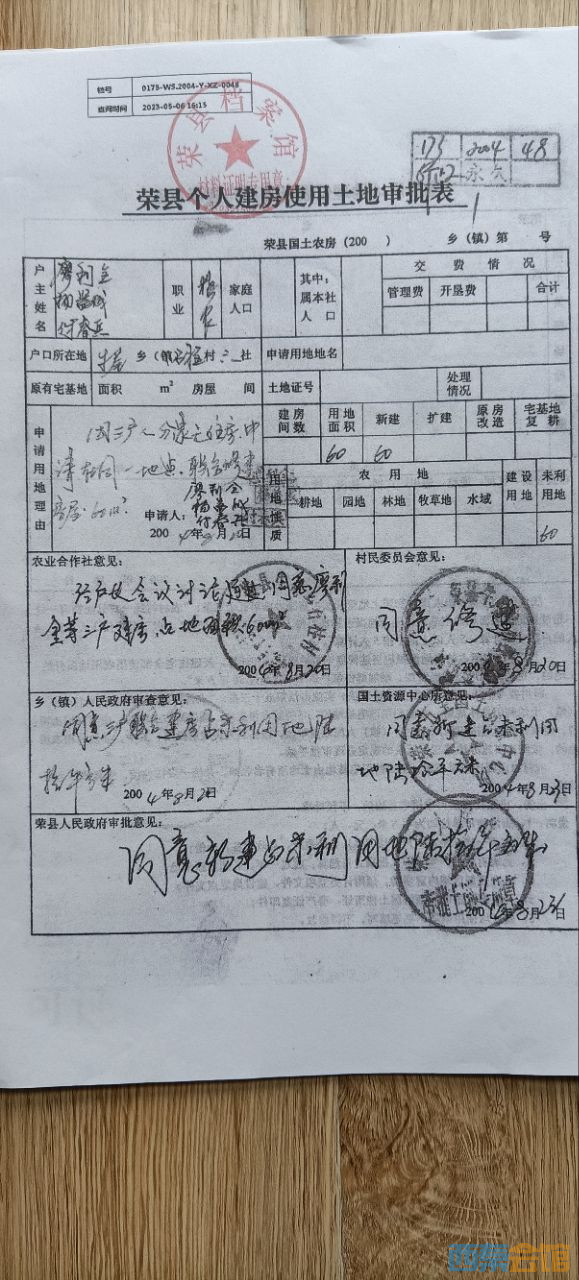 档号 0175-WS.2004-Y-XZ-0048
查阅时间 2023-05-06 16:15
荣县档案馆
材料证明专用章
173 2004 48
永久
荣县个人建房使用土地审批表
荣县国土农房（200　　）　　乡（镇）第　　号
户主姓名 廖利全
职业 务农
家庭人口
其中：属本社人口
交费情况
管理费 开垦费 合计
户口所在地 乡（镇） 村 社 申请用地地名
原有宅基地 面积 m² 房屋 间 土地证号 处理情况
申请用地理由
建房间数 用地面积 新建 扩建 原房改造 宅基地复耕
60 60
因三户人 住房，申
请在同一地点，联合修建
房屋60m²
用地性质
农用地
耕地 园地 林地 牧草地 水域
建设用地 未利用地
60
申请人：廖利全
2004年8月20日
农业合作社意见：
经户长会议讨论 同意廖利
全等三户建房占地面积60m²
2004年8月20日
村民委员会意见：
同意修建
2004年8月20日
乡（镇）人民政府审查意见：
同意三户联合建房占未利用地陆
拾平方米
2004年8月2 日
国土资源中心所意见：
同意新建占未利用
地陆拾平方米
2004年8月23日
荣县人民政府审批意见：
同意新建占未利用地陆拾平方米
2004年8月23日